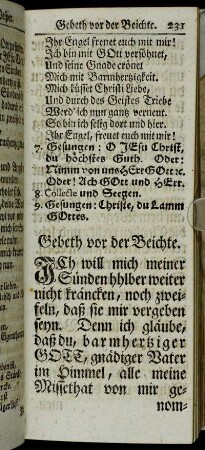 Gebeth vor der Beichte. 231
Ihr Engel freuet euch mit mir!
Ich bin mit GOtt versöhnet,
Und seine Gnade crönet
Mich mit Barmhertzigkeit.
Mich küsset Christi Liebe,
Und durch des Geistes Triebe
Werd ich nun gantz verneut.
So bin ich selig dort und hier.
Ihr Engel, freuet euch mit mir!
7. Gesungen: O JEsu Christ,
du höchstes Guth. Oder:
Nimm von uns HErr GOtt ꝛc.
Oder: Ach GOtt und HErr.
8. Collecte und Seegen.
9. Gesungen: Christe, du Lamm
GOttes.
Gebeth vor der Beichte.
ICh will mich meiner
Sünden hhlber weiter
nicht kräncken, noch zwei-
feln, daß sie mir vergeben
seyn. Denn ich gläube,
daß du, barmhertziger
GOTT, gnädiger Vater
im Himmel, alle meine
Missethat von mir ge-
nom-